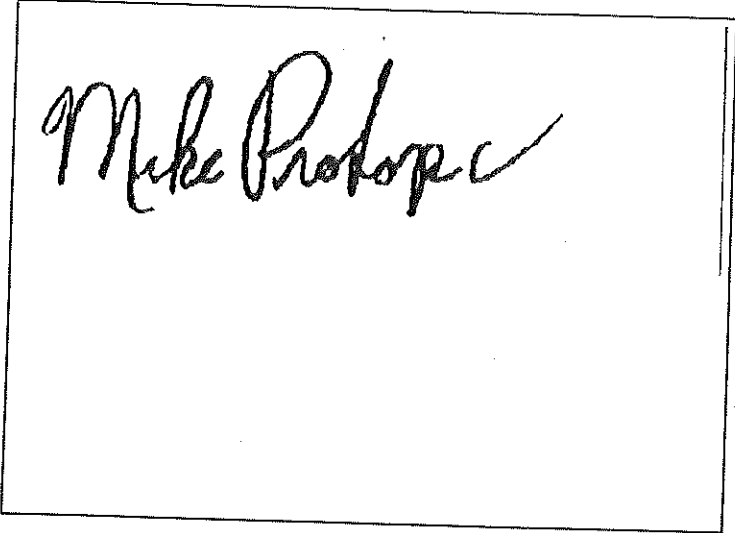 Mike Prokopec